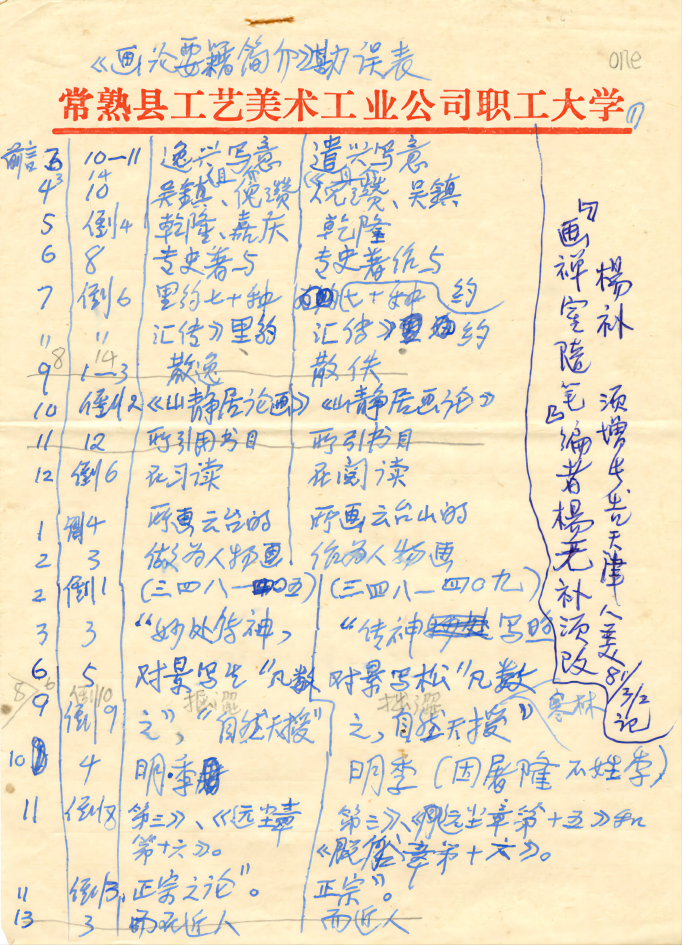 《画论要籍简介》勘误表
one
常熟县工艺美术工业公司职工大学
(1)
前言 3 10—11 逸兴写意 遣兴写意
4 10 吴鎮、倪瓒 倪瓒、吴鎮
5 倒4 乾隆、嘉庆 乾隆
6 8 专史著与 专史著作与
7 倒6 里约七十种 七十种 约
〃 〃 汇传》里約 汇传》 約
9 1—3 散逸 散佚
10 倒2 《山静居论画》 《山静居画论》
11 12 所引用书目 所引书目
12 倒6 在习读 在阅读
1 倒4 所画云台的 所画云台山的
2 3 做为人物画 作为人物画
2 倒1 (三四八—四〇五) (三四八—四〇九)
3 3 “妙处传神, “传神 写照
6 5 对景写生“凡数 对景写松“凡数
9 倒9 之”,“自然天授” 之,自然天授” 寒林
10 4 明·季 明季(因屠隆不姓李)
11 倒8 第三》、《远尘章 第三》、《远尘章第十五》和
第十六》。 《脱俗章第十六》。
11 倒3 “正宗之论”。 正宗”。
13 3 而无近人 而近人
《画禅室随笔》编者楊无补须改
楊补
须增 天津人美
81/3/2
记